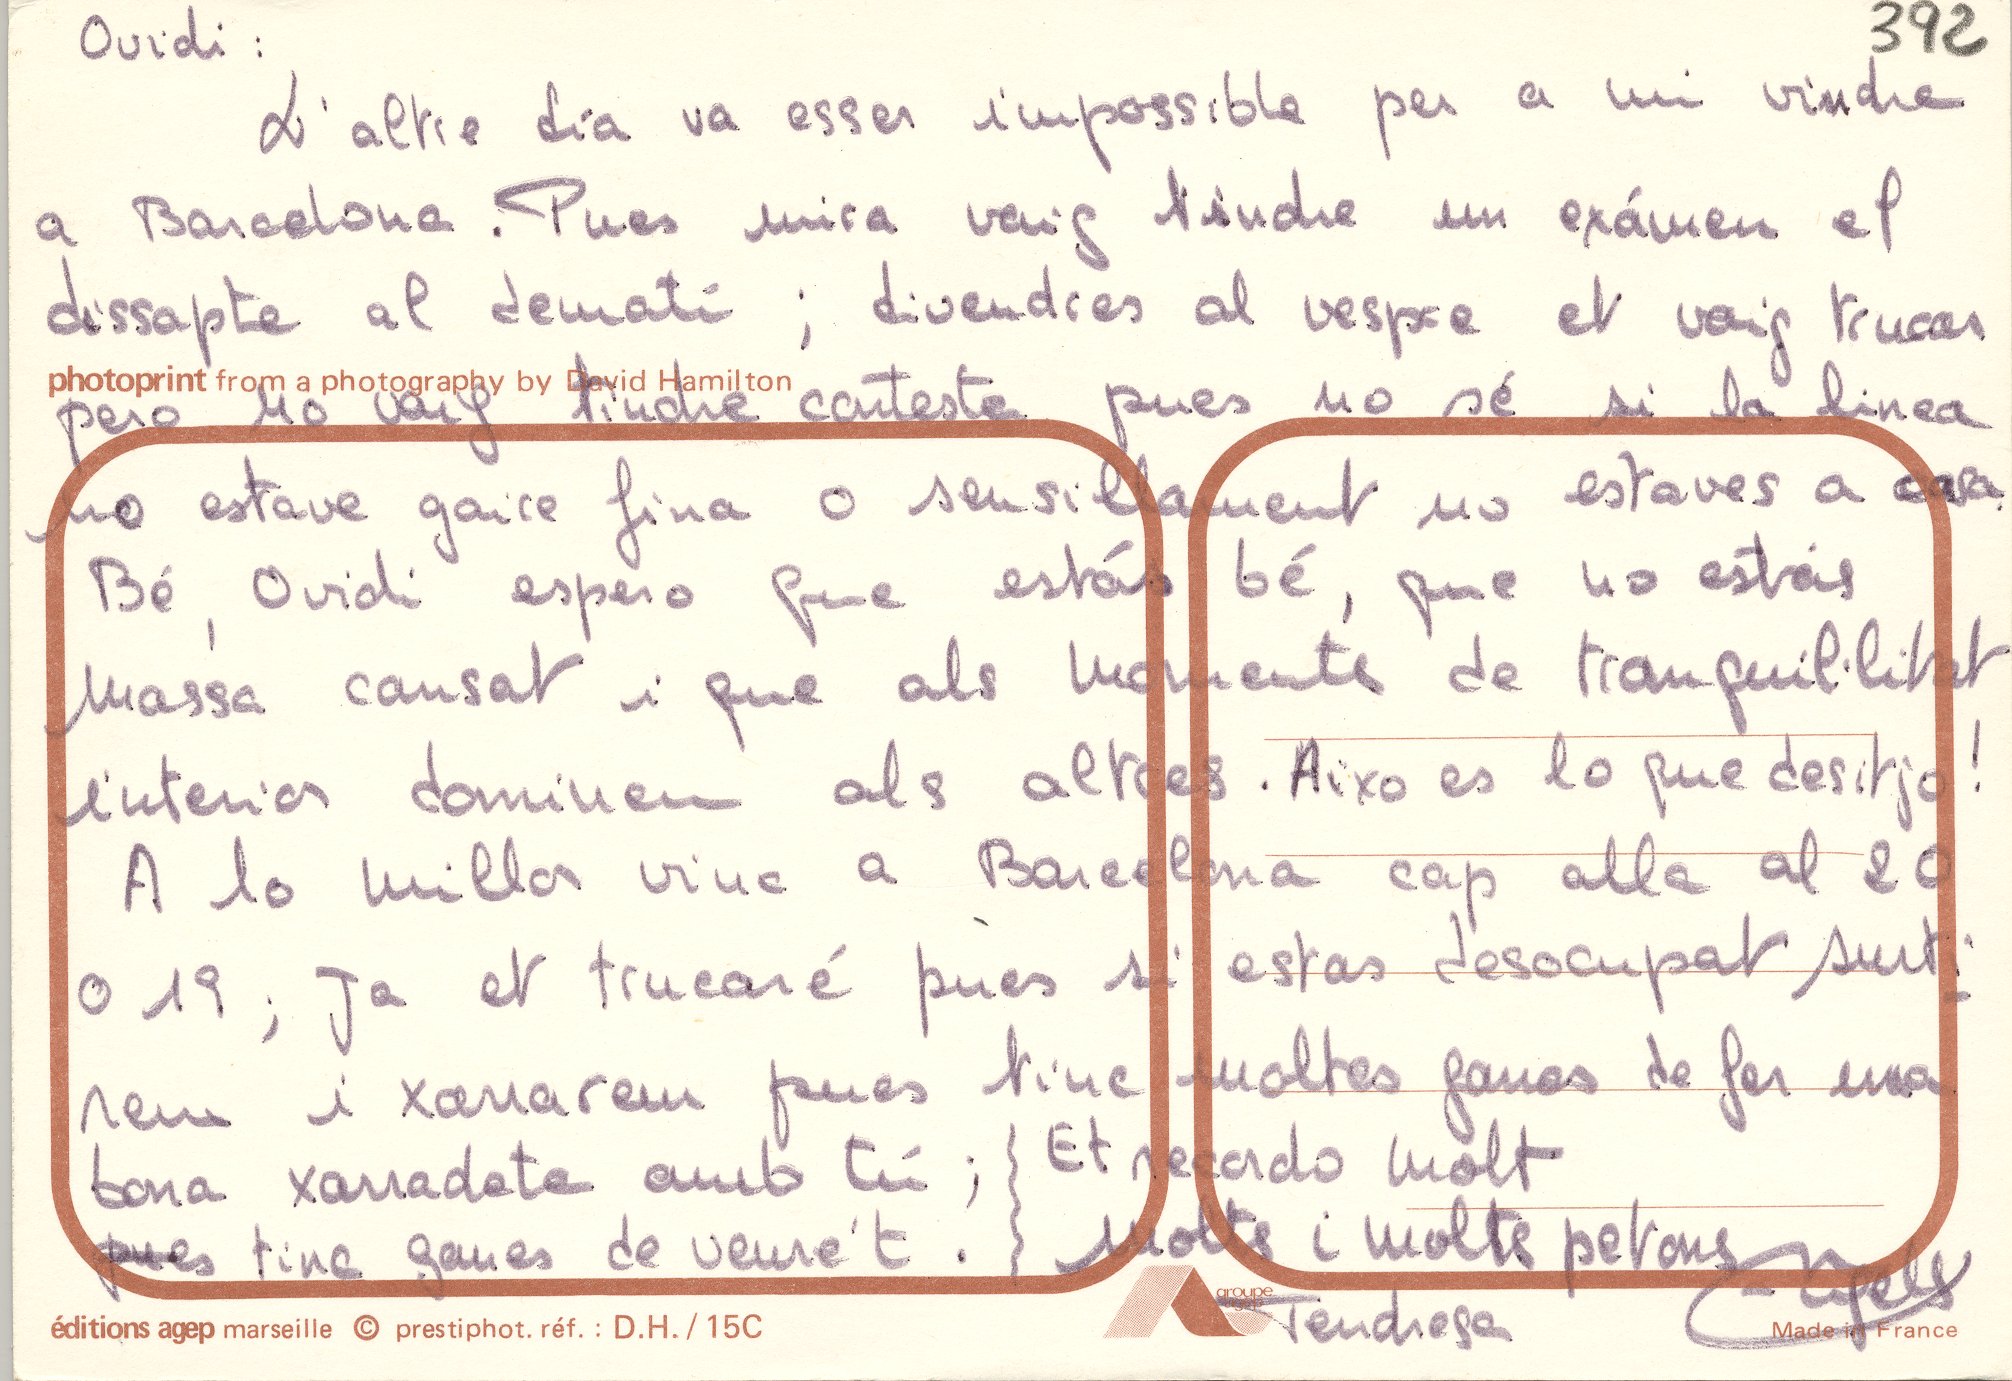 392
Ovidi :
L'altre día va esser impossible per a mi vindre
a Barcelona. Pues mira vaig tindre un exámen el
dissapte al dematí ; divendres al vespre et vaig trucar
photoprint from a photography by David Hamilton
pero no vaig tindre contesta pues no sé si la linea
no estave gaire fina o sensillament no estaves a casa.
Bé, Ovidi espero que estás bé, que no estás
massa cansat i que als moments de tranquil·litat
interior dominen als altres. Aixo es lo que desitjo!
A lo millor vinc a Barcelona cap alla al 20
o 19 ; Ja et trucaré pues si estas desocupat surti
rem i xarrarem pues tinc moltes ganes de fer una
bona xarradeta amb tú ; } Et recordo molt
pues tinc ganes de veure't . } Molts i molts petons
Tendresa Angels
éditions agep marseille © prestiphot. réf. : D.H. / 15C
groupe
Made in France